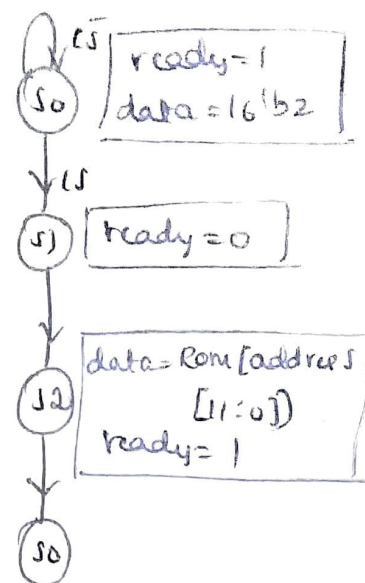 cs̅
ready=1
S0
data=16'bz
cs
S1
ready=0
data=Rom[address
S2
[11:0])
ready=1
S0